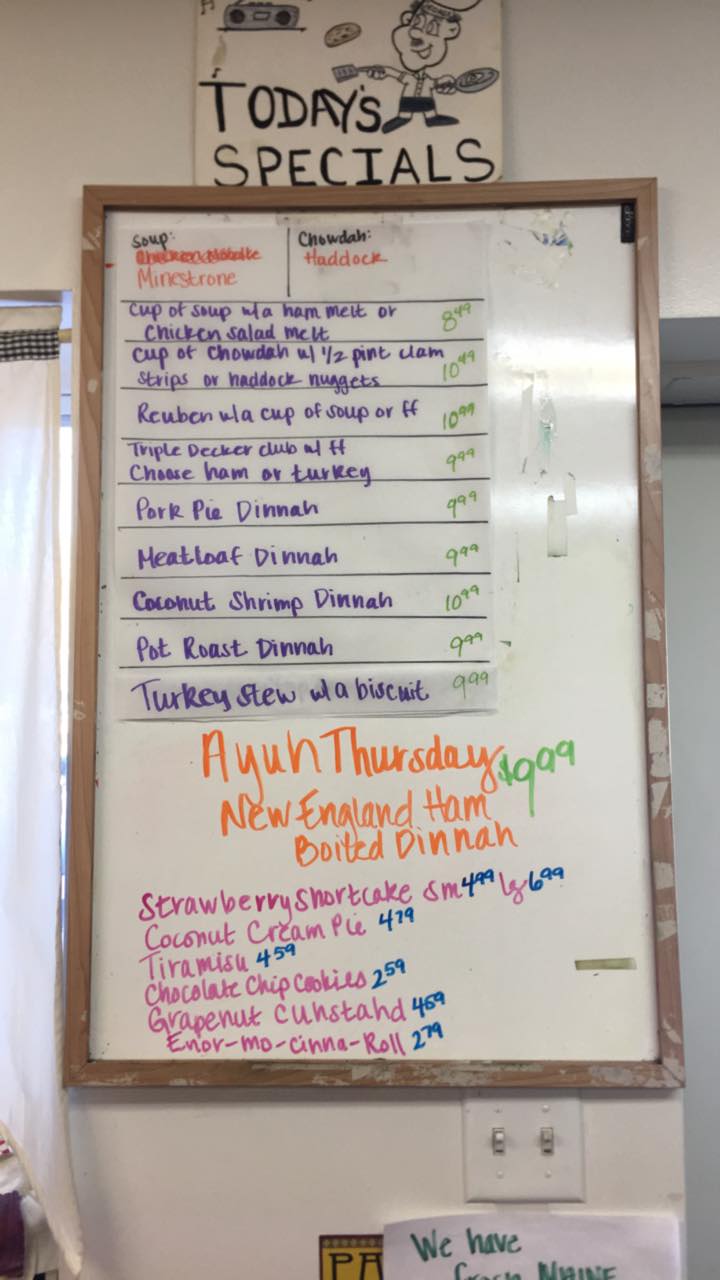 TODAY'S
SPECIALS
Soup:
Minestrone
Chowdah:
Haddock
Cup of soup w/a ham melt or 8.49
Chicken salad melt
Cup of Chowdah w/ 1/2 pint clam 10.49
Strips or haddock nuggets
Reuben w/a cup of soup or ff 10.99
Triple Decker club w/ ff 9.99
Choose ham or turkey
Pork Pie Dinnah 9.99
Meatloaf Dinnah 9.99
Coconut Shrimp Dinnah 10.99
Pot Roast Dinnah 9.99
Turkey stew w/a biscuit 9.99
Ayuh Thursday $9.99
New England Ham
Boiled Dinnah
Strawberry Shortcake sm 4.99 lg 6.99
Coconut Cream Pie 4.79
Tiramisu 4.59
Chocolate Chip Cookies 2.59
Grapenut Cuhstahd
Enor-mo-cinna-Roll 2.79
PA
We have
fresh MAINE